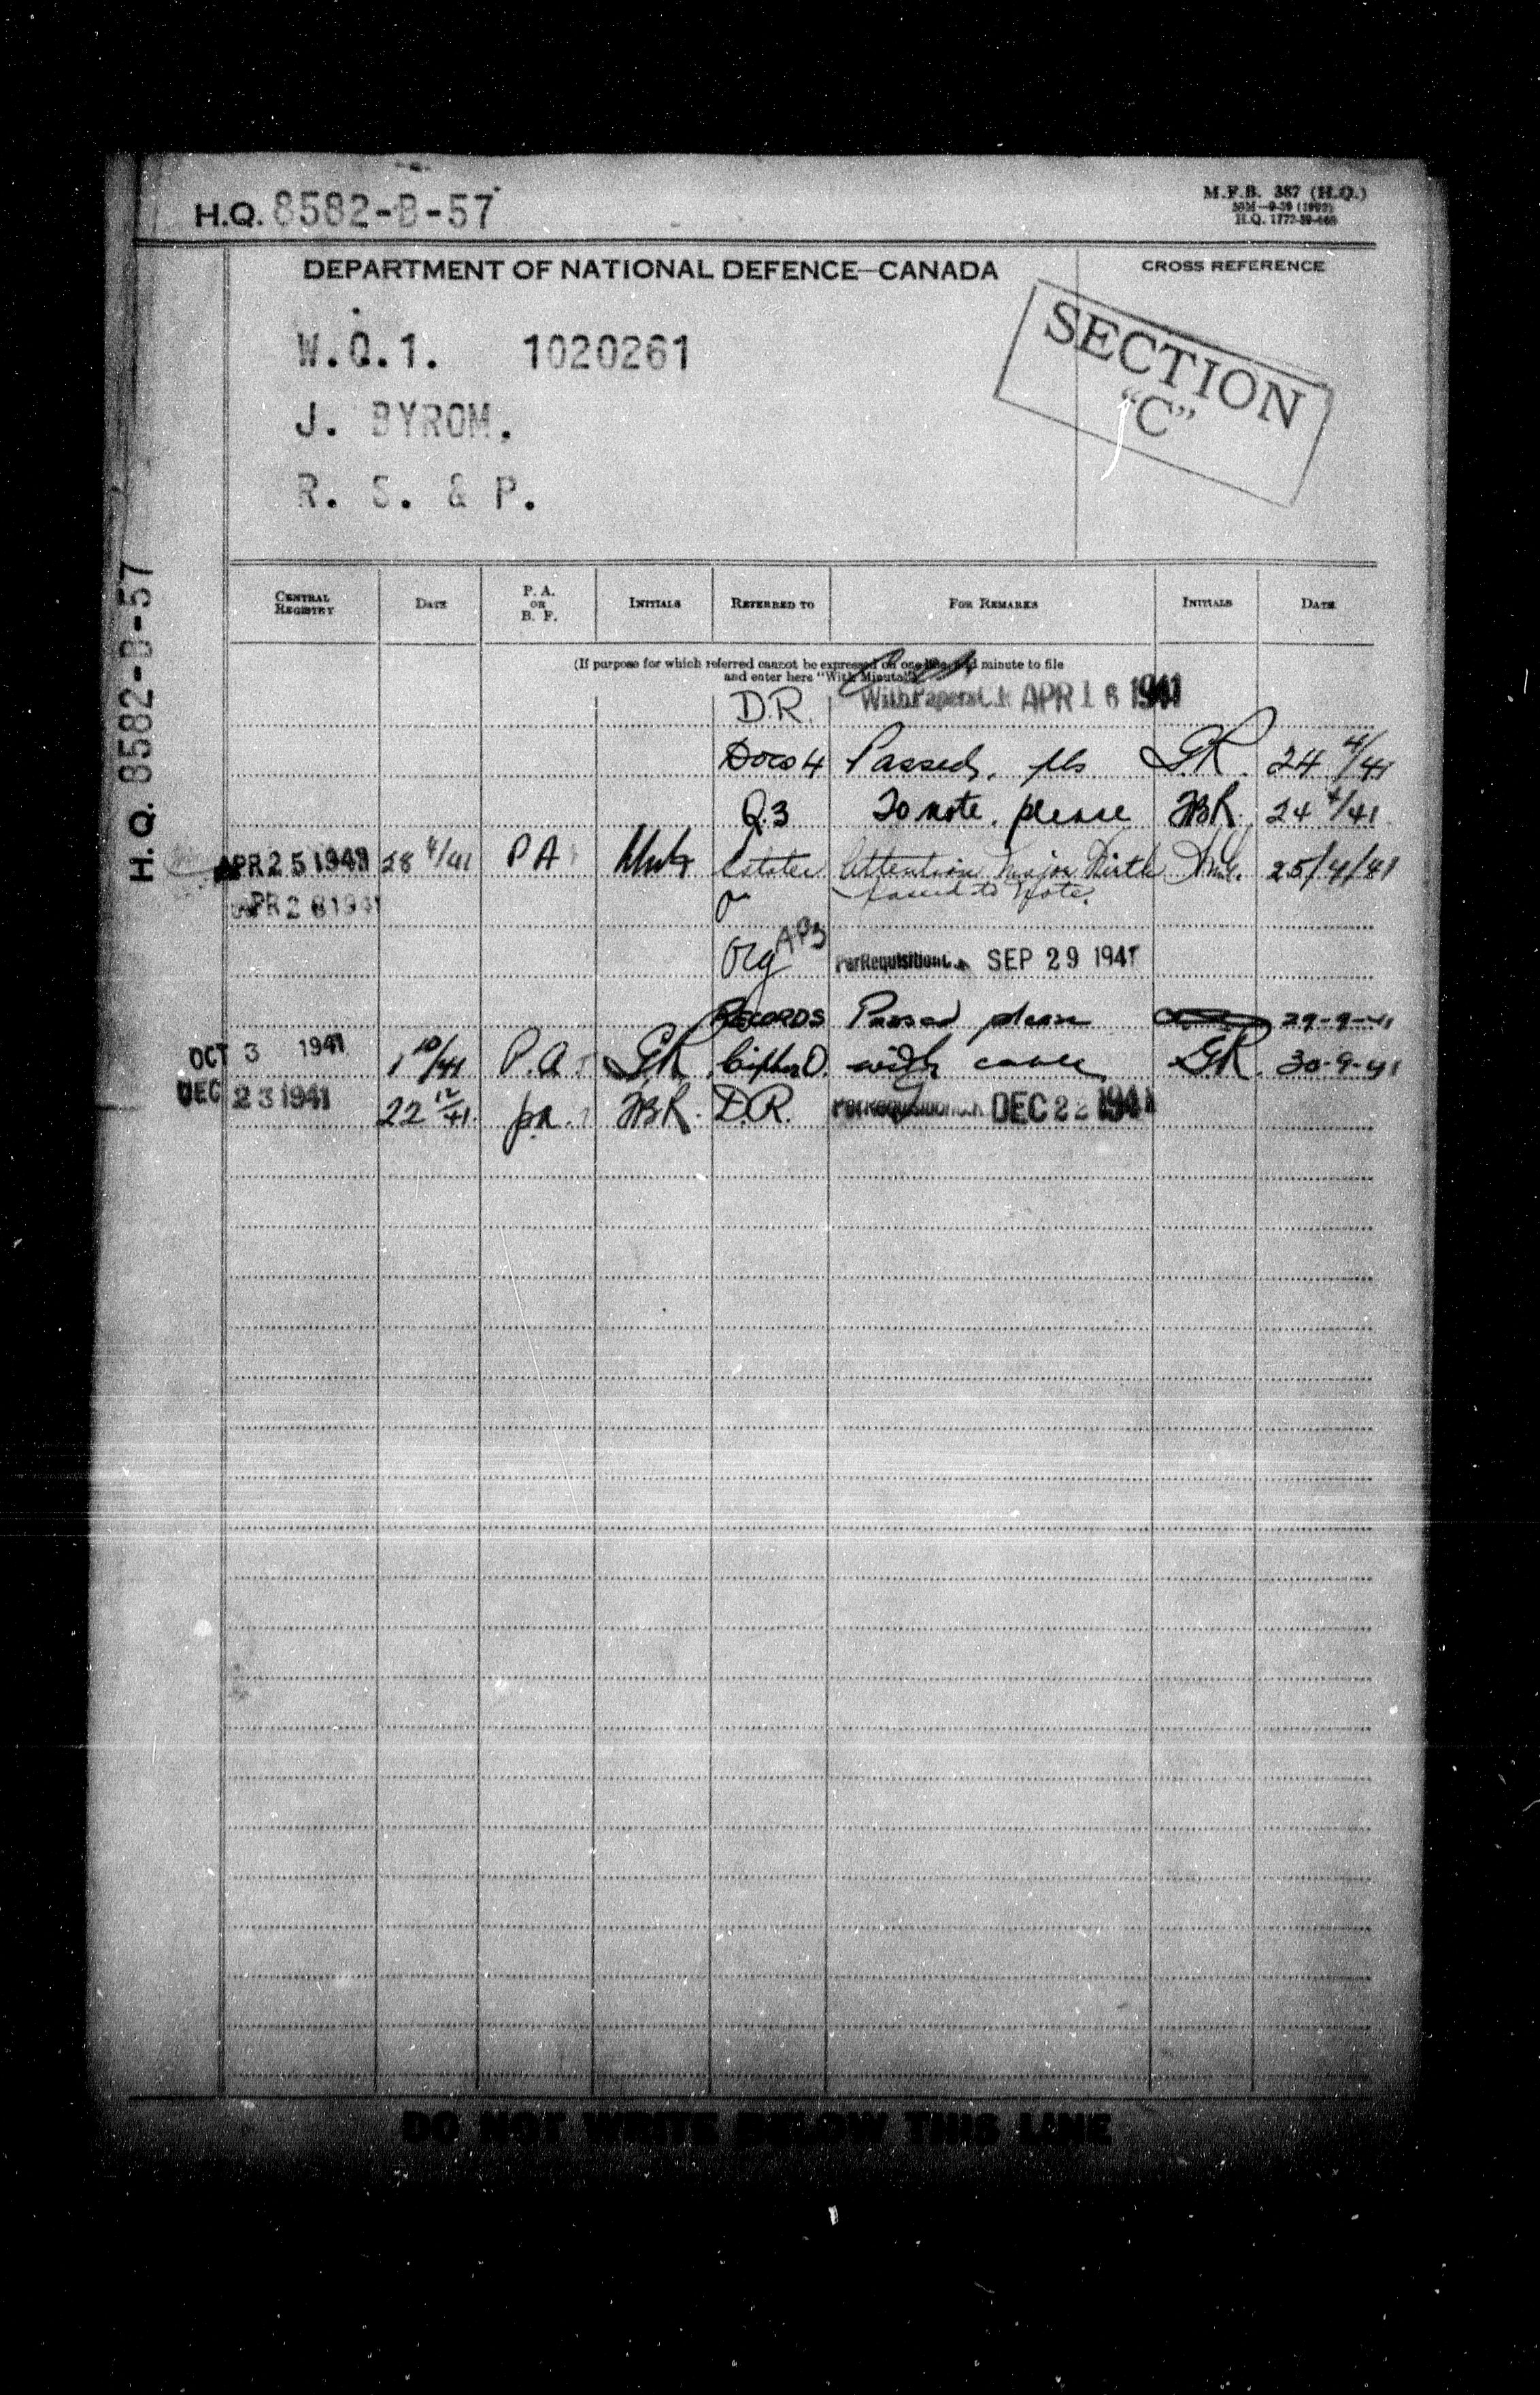 H.Q. 8582-B-57
M.F.B. 387 (H.Q.)
H.Q. 1772-39-
DEPARTMENT OF NATIONAL DEFENCE—CANADA
CROSS REFERENCE
W.O.1. 1020261
J. BYROM.
R. S. & P.
SECTION
"C"
H.Q. 8582-B-57
CENTRAL REGISTRY DATE P. A. OR B. F. INITIALS REFERRED TO FOR REMARKS INITIALS DATE
(If purpose for which referred cannot be expressed on one line, add minute to file
and enter here "With Minute")
D.R. With Papers APR 16 1941
Docs 4 Passed, pls G.R. 24 4/41
Q.3 To note, please JBR. 24 4/41
APR 25 1941 28 4/41 PA Estates Attention Major Firth 25/4/41
APR 28 1941 passed to Note.
Org AP3 Per Requisition SEP 29 1941
RECORDS Passed please 29-9-41
OCT 3 1941 1 10/41 P.A. G.R. Cipher O. with cable G.R. 30-9-41
DEC 23 1941 22 12/41. pa. JBR. D.R. Per Requisition DEC 22 1941
DO NOT WRITE BELOW THIS LINE